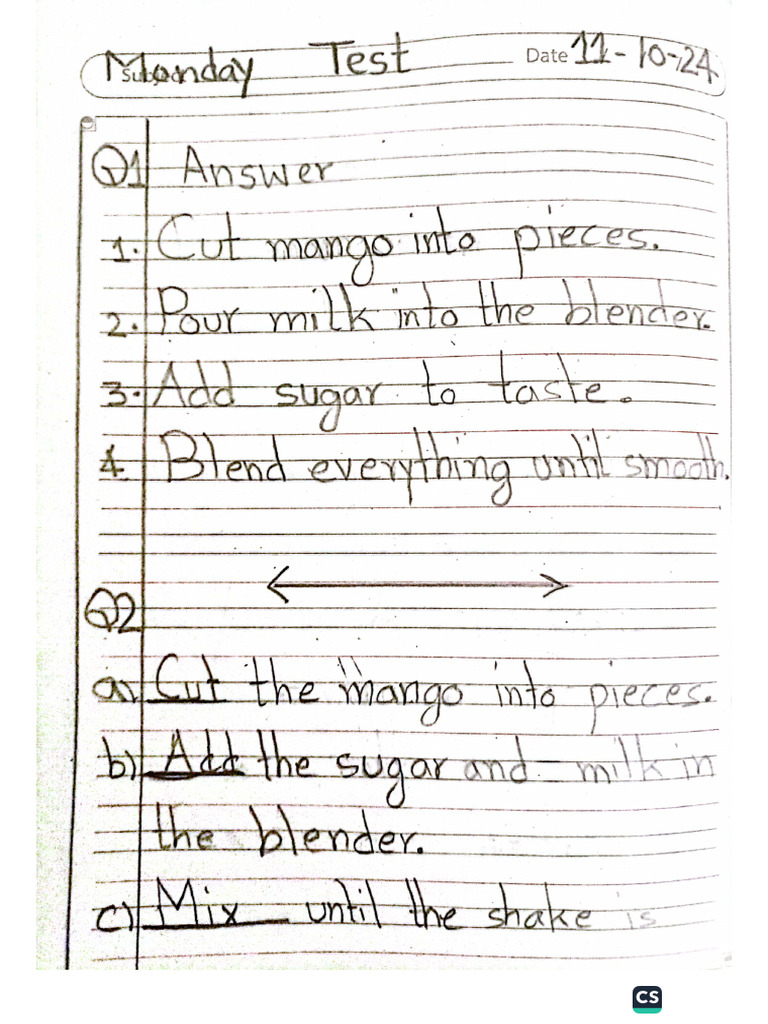 Monday Test Date 11-10-24
Q1 Answer
1. Cut mango into pieces.
2. Pour milk into the blender.
3. Add sugar to taste.
4. Blend everything until smooth.
Q2
a) Cut the mango into pieces.
b) Add the sugar and milk in
the blender.
c) Mix until the shake is
CS